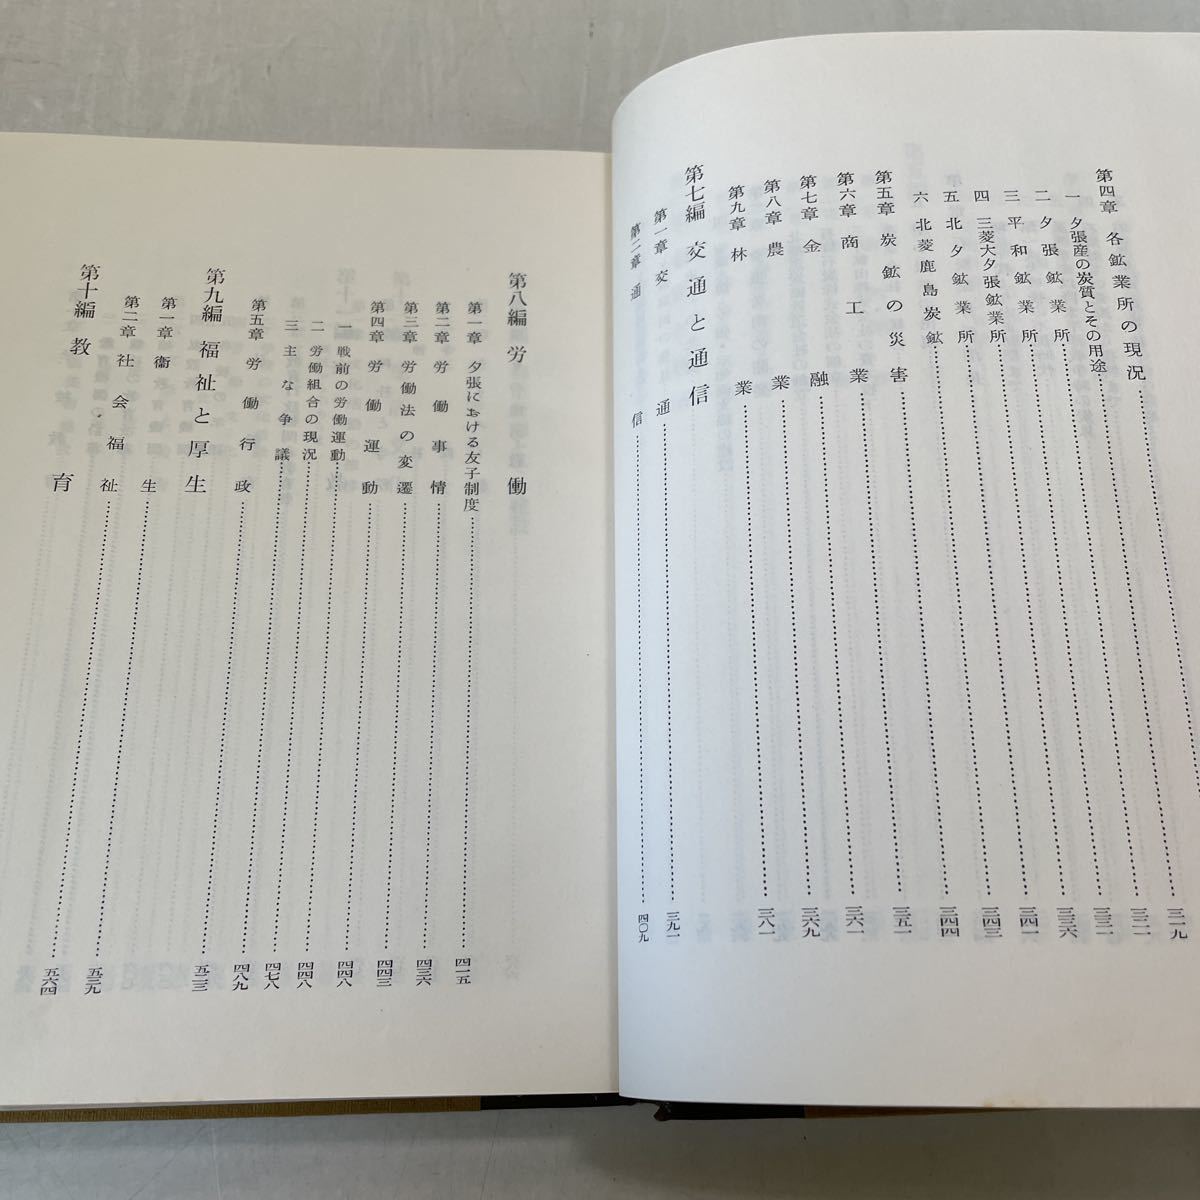 第四章 各鉱業所の現況
一 夕張産の炭質とその用途 三一九
二 夕張鉱業所 三二一
三 平和鉱業所 三三一
四 三菱大夕張鉱業所 三三六
五 北夕鉱業所 三四一
六 北菱鹿島炭鉱 三四三
第五章 炭鉱の災害 三四四
第六章 商工業 三五一
第七章 金融 三六一
第八章 農業 三六九
第九章 林業 三八一
第七編 交通と通信
第一章 交通 三九一
第二章 通信 四〇九
第八編 労働
第一章 夕張における友子制度 四一五
第二章 労働事情 四三六
第三章 労働法の変遷 四四三
第四章 労働運動 四四八
一 戦前の労働運動 四四八
二 労働組合の現況 四七八
三 主な争議 四八九
第五章 労働行政 五二三
第九編 福祉と厚生
第一章 衛生 五三九
第二章 社会福祉 五六四
第十編 教育